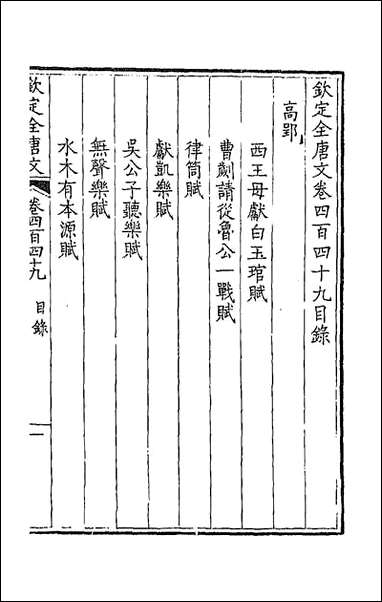 欽定全唐文卷四百四十九目錄
高郢
西王母獻白玉琯賦
曹劌請從魯公一戰賦
律筒賦
獻凱樂賦
吳公子聽樂賦
無聲樂賦
水木有本源賦
欽定全唐文 卷四百四十九 目錄 一